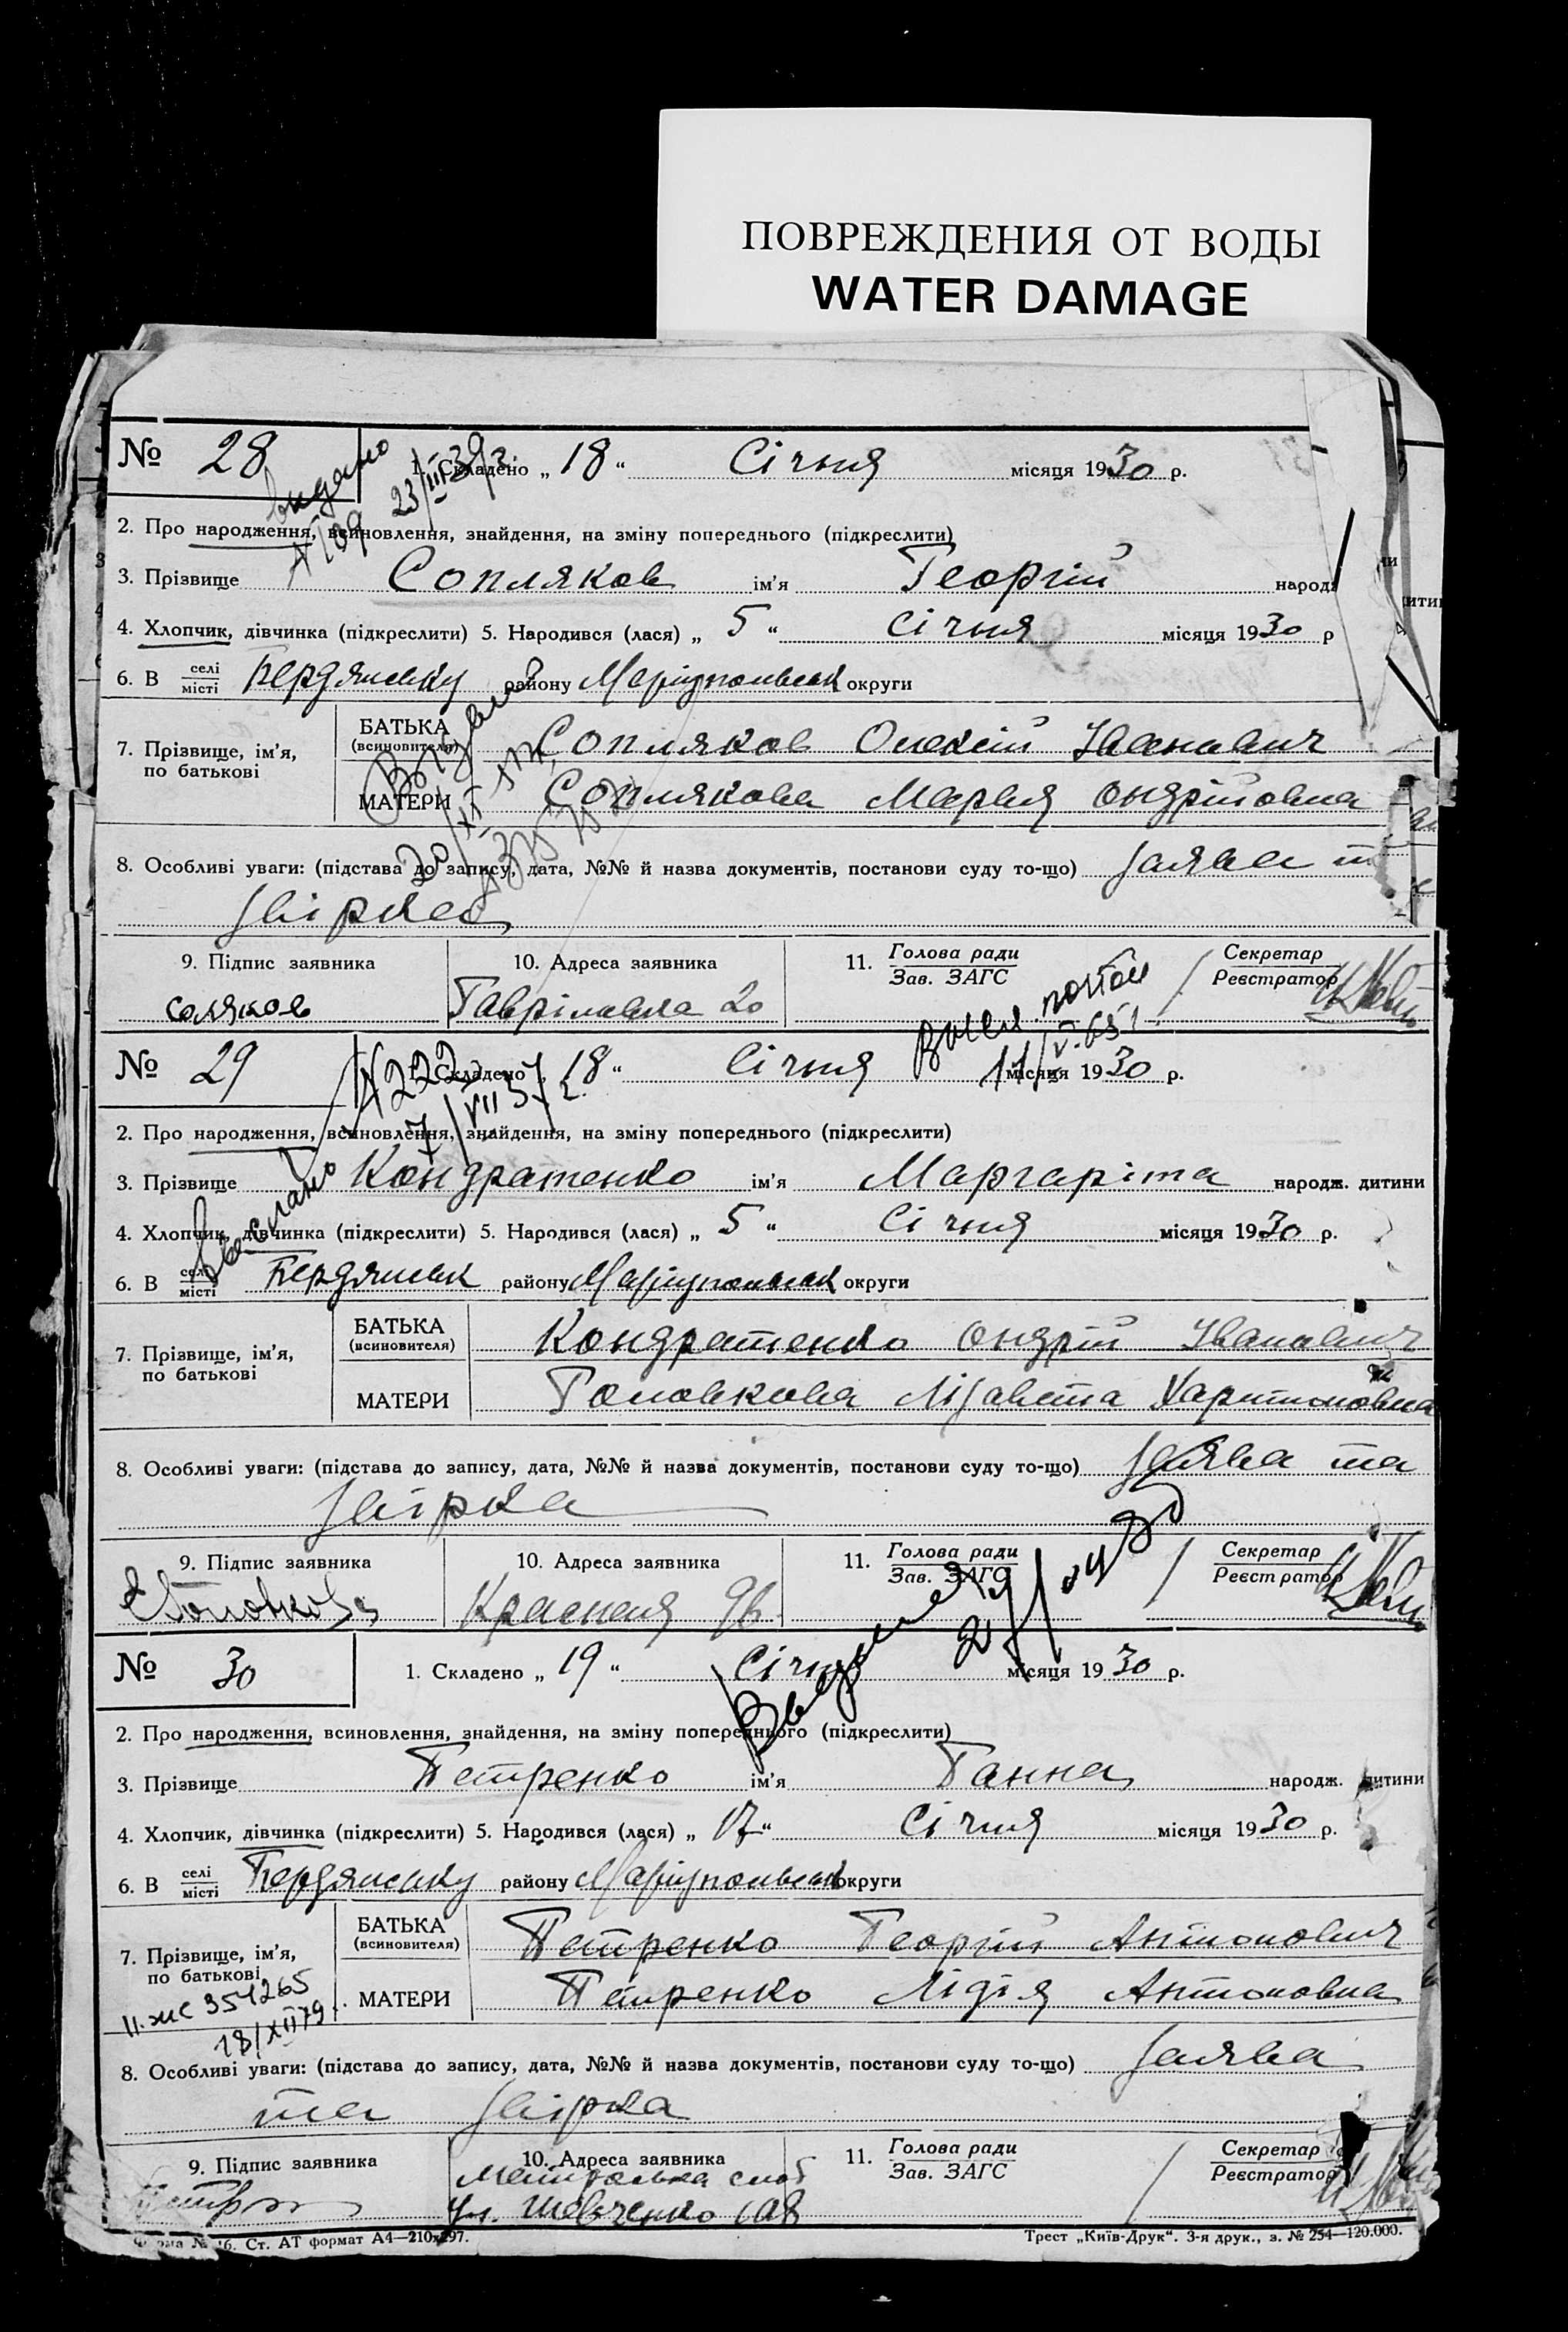 ПОВРЕЖДЕНИЯ ОТ ВОДЫ
WATER DAMAGE
№ 28
видано
№ 109 23/III 39 г.
1. Складено „ 18 “ Січня місяця 1930 р.
2. Про народження, всиновлення, знайдення, на зміну попереднього (підкреслити)
3. Прізвище Сопляков ім’я Георгій народж
4. Хлопчик, дівчинка (підкреслити) 5. Народився (лася) „ 5 “ Січня місяця 1930 р
6. В селі місті Бердянську району Маріупольськ округи
Выдано
7. Прізвище, ім’я, по батькові
БАТЬКА (всиновителя) Сопляков Олексій Іванович
МАТЕРИ Соплякова Марья Ондріївна
8. Особливі уваги: (підстава до запису, дата, №№ й назва документів, постанови суду то-що) Заява т
Звірка
9. Підпис заявника
10. Адреса заявника 20
11. Голова ради Зав. ЗАГС
Секретар Реєстратор
№ 29
№ 222
7/VII 57 г.
Выслано
1. Складено „ 18 “ Січня місяця 1930 р.
11/V.65
2. Про народження, всиновлення, знайдення, на зміну попереднього (підкреслити)
3. Прізвище Кондратенко ім’я Маргаріта народж. дитини
4. Хлопчик, дівчинка (підкреслити) 5. Народився (лася) „ 5 “ Січня місяця 1930 р.
6. В селі місті Бердянськ району Маріупольськ округи
7. Прізвище, ім’я, по батькові
БАТЬКА (всиновителя) Кондратенко Ондрій Іванович
МАТЕРИ Головкова Лізавета Харитоновна
8. Особливі уваги: (підстава до запису, дата, №№ й назва документів, постанови суду то-що) Заява та
Звірка
9. Підпис заявника
10. Адреса заявника Красная 96
11. Голова ради Зав. ЗАГС
Секретар Реєстратор
№ 30
1. Складено „ 19 “ Січня місяця 1930 р.
2. Про народження, всиновлення, знайдення, на зміну попереднього (підкреслити)
3. Прізвище Петренко ім’я Ганна народж. дитини
4. Хлопчик, дівчинка (підкреслити) 5. Народився (лася) „ 17 “ Січня місяця 1930 р.
6. В селі місті Бердянську району Маріупольськ округи
7. Прізвище, ім’я, по батькові
БАТЬКА (всиновителя) Петренко Георгій Антонович
МАТЕРИ Петренко Лідія Антоновна
354265
18/XII 79
8. Особливі уваги: (підстава до запису, дата, №№ й назва документів, постанови суду то-що) Заява
та Звірка
9. Підпис заявника
10. Адреса заявника
ул. Шевченко
11. Голова ради Зав. ЗАГС
Секретар Реєстратор
Ст. АТ формат А4—210х297.
Трест „Київ-Друк“. 3-я друк., з. № 254—120.000.